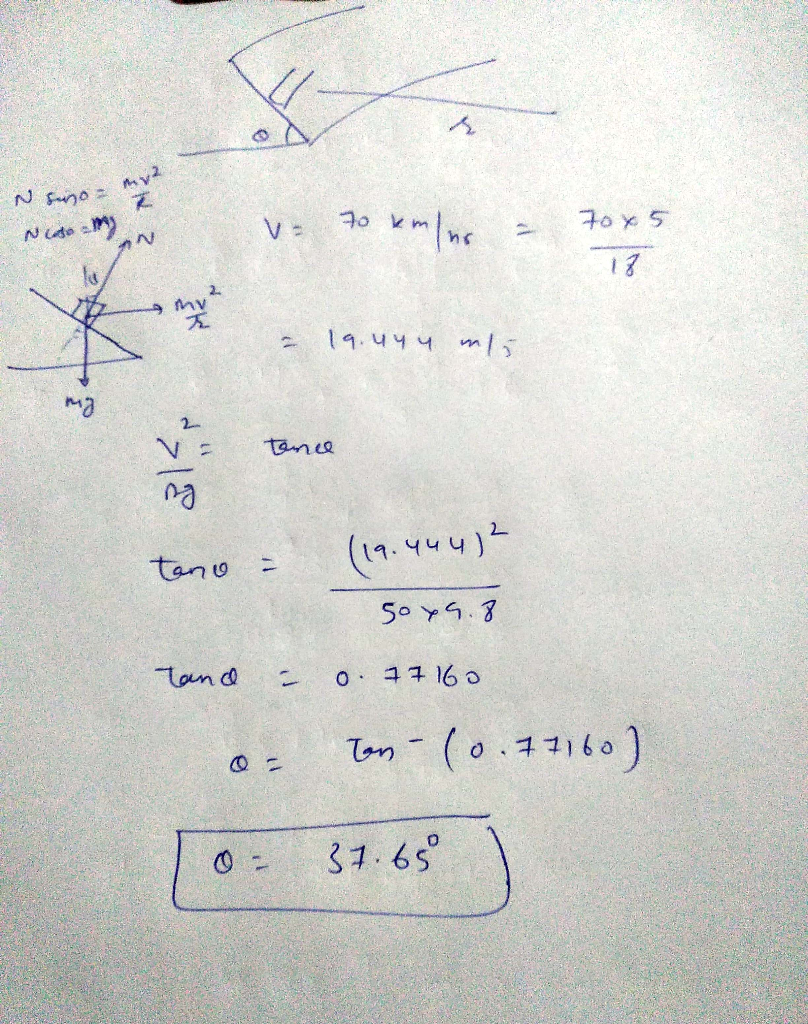 θ
r
N sinθ = mv²/r
N cosθ = mg
N
θ
mv²/r
mg
V = 70 km/hr = 70 × 5 / 18
= 19.444 m/s
V²/rg = tanθ
tanθ = (19.444)² / 50 × 9.8
Tanθ = 0.77160
θ = Tan⁻ (0.77160)
θ = 37.65°